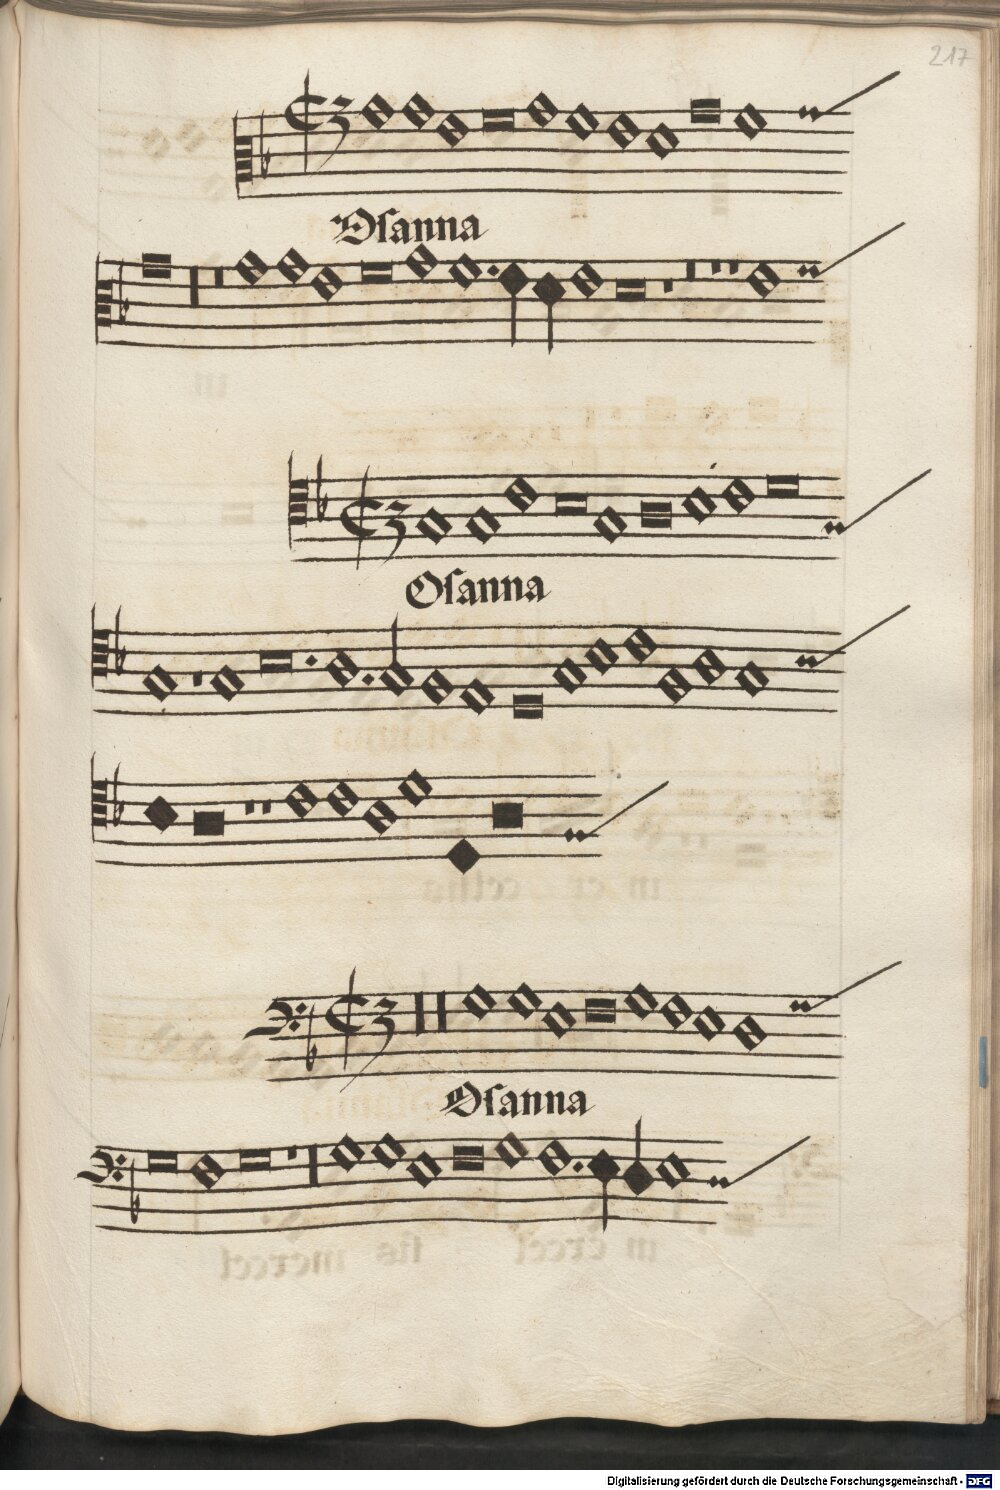 217
Osanna
Osanna
Osanna
Digitalisierung gefördert durch die Deutsche Forschungsgemeinschaft - DFG